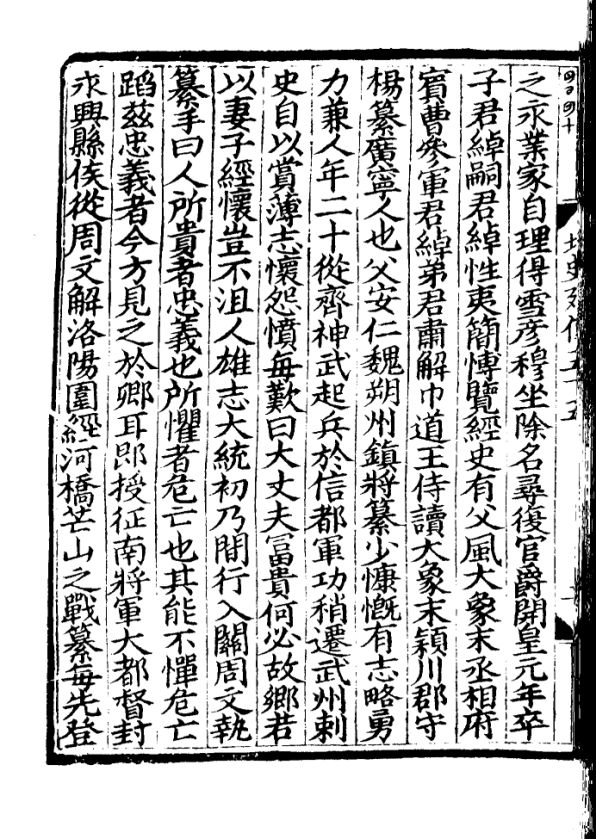 之永業家自理得雪彦穆坐除名尋復官爵開皇元年卒
子君綽嗣君綽性夷簡愽覽經史有父風大象末丞相府
賓曹參軍君綽弟君肅解巾道王侍讀大象末潁川郡守
楊纂廣寧人也父安仁魏朔州鎮將纂少慷慨有志略勇
力兼人年二十從齊神武起兵於信都軍功稍遷武州刺
史自以賞薄志懷怨憤每歎曰大丈夫冨貴何必故鄉若
以妻子經懷豈不沮人雄志大統初乃間行入關周文執
纂手曰人所貴者忠義也所懼者危亡也其能不憚危亡
蹈兹忠義者今方見之於卿耳即授征南將軍大都督封
永興縣侯從周文解洛陽圍經河橋芒山之戰纂每先登